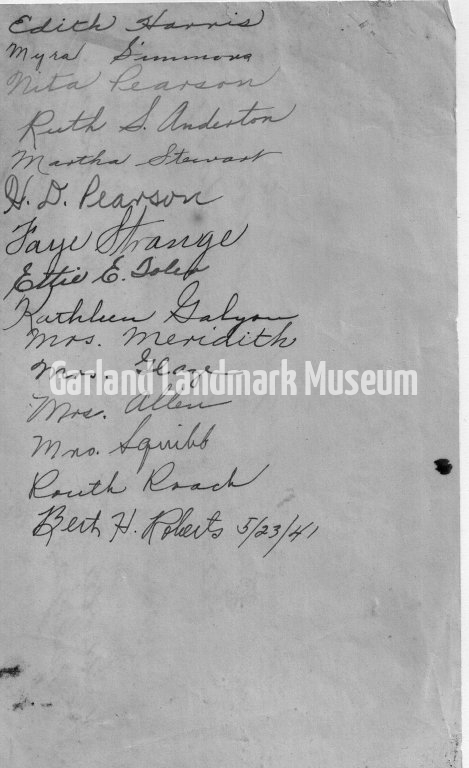 Edith Harris
Myra Simmons
Nita Pearson
Ruth S. Anderton
Martha Stewart
H. D. Pearson
Faye Strange
Ettie E.
Kathleen Galyon
Mrs. Meridith
Mrs.
Garland Landmark Museum
Mrs. Allen
Mrs. Squibb
Routh Roach
Bert H. Roberts 5/23/41